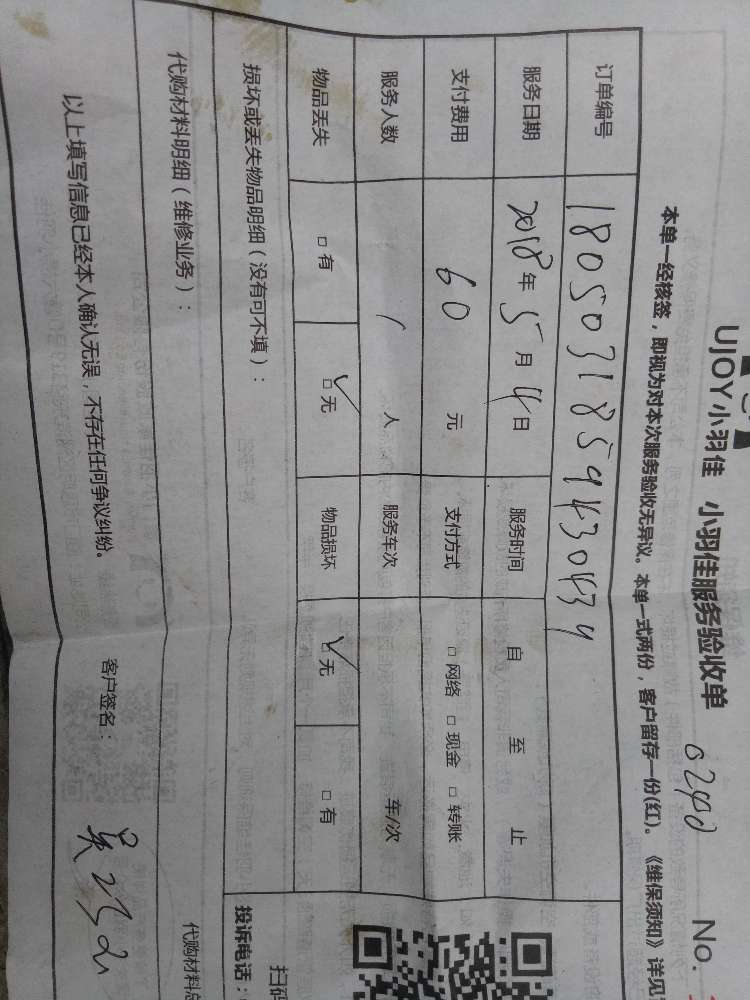 UJOY小羽佳 小羽佳服务验收单 No.
本单一经核签，即视为对本次服务验收无异议。本单一式两份，客户留存一份(红)。《维保须知》详见
订单编号
服务日期 2018年5月4日 服务时间 自 至 止
支付费用 60 元 支付方式 □ 网络 □ 现金 □ 转账
服务人数 1 人 服务车次 车/次
物品丢失 □ 有 ☑ 无 物品损坏 ☑ 无 □ 有
损坏或丢失物品明细（没有可不填）：
投诉电话：
扫码
代购材料明细（维修业务）：
代购材料总
以上填写信息已经本人确认无误，不存在任何争议纠纷。 客户签名：